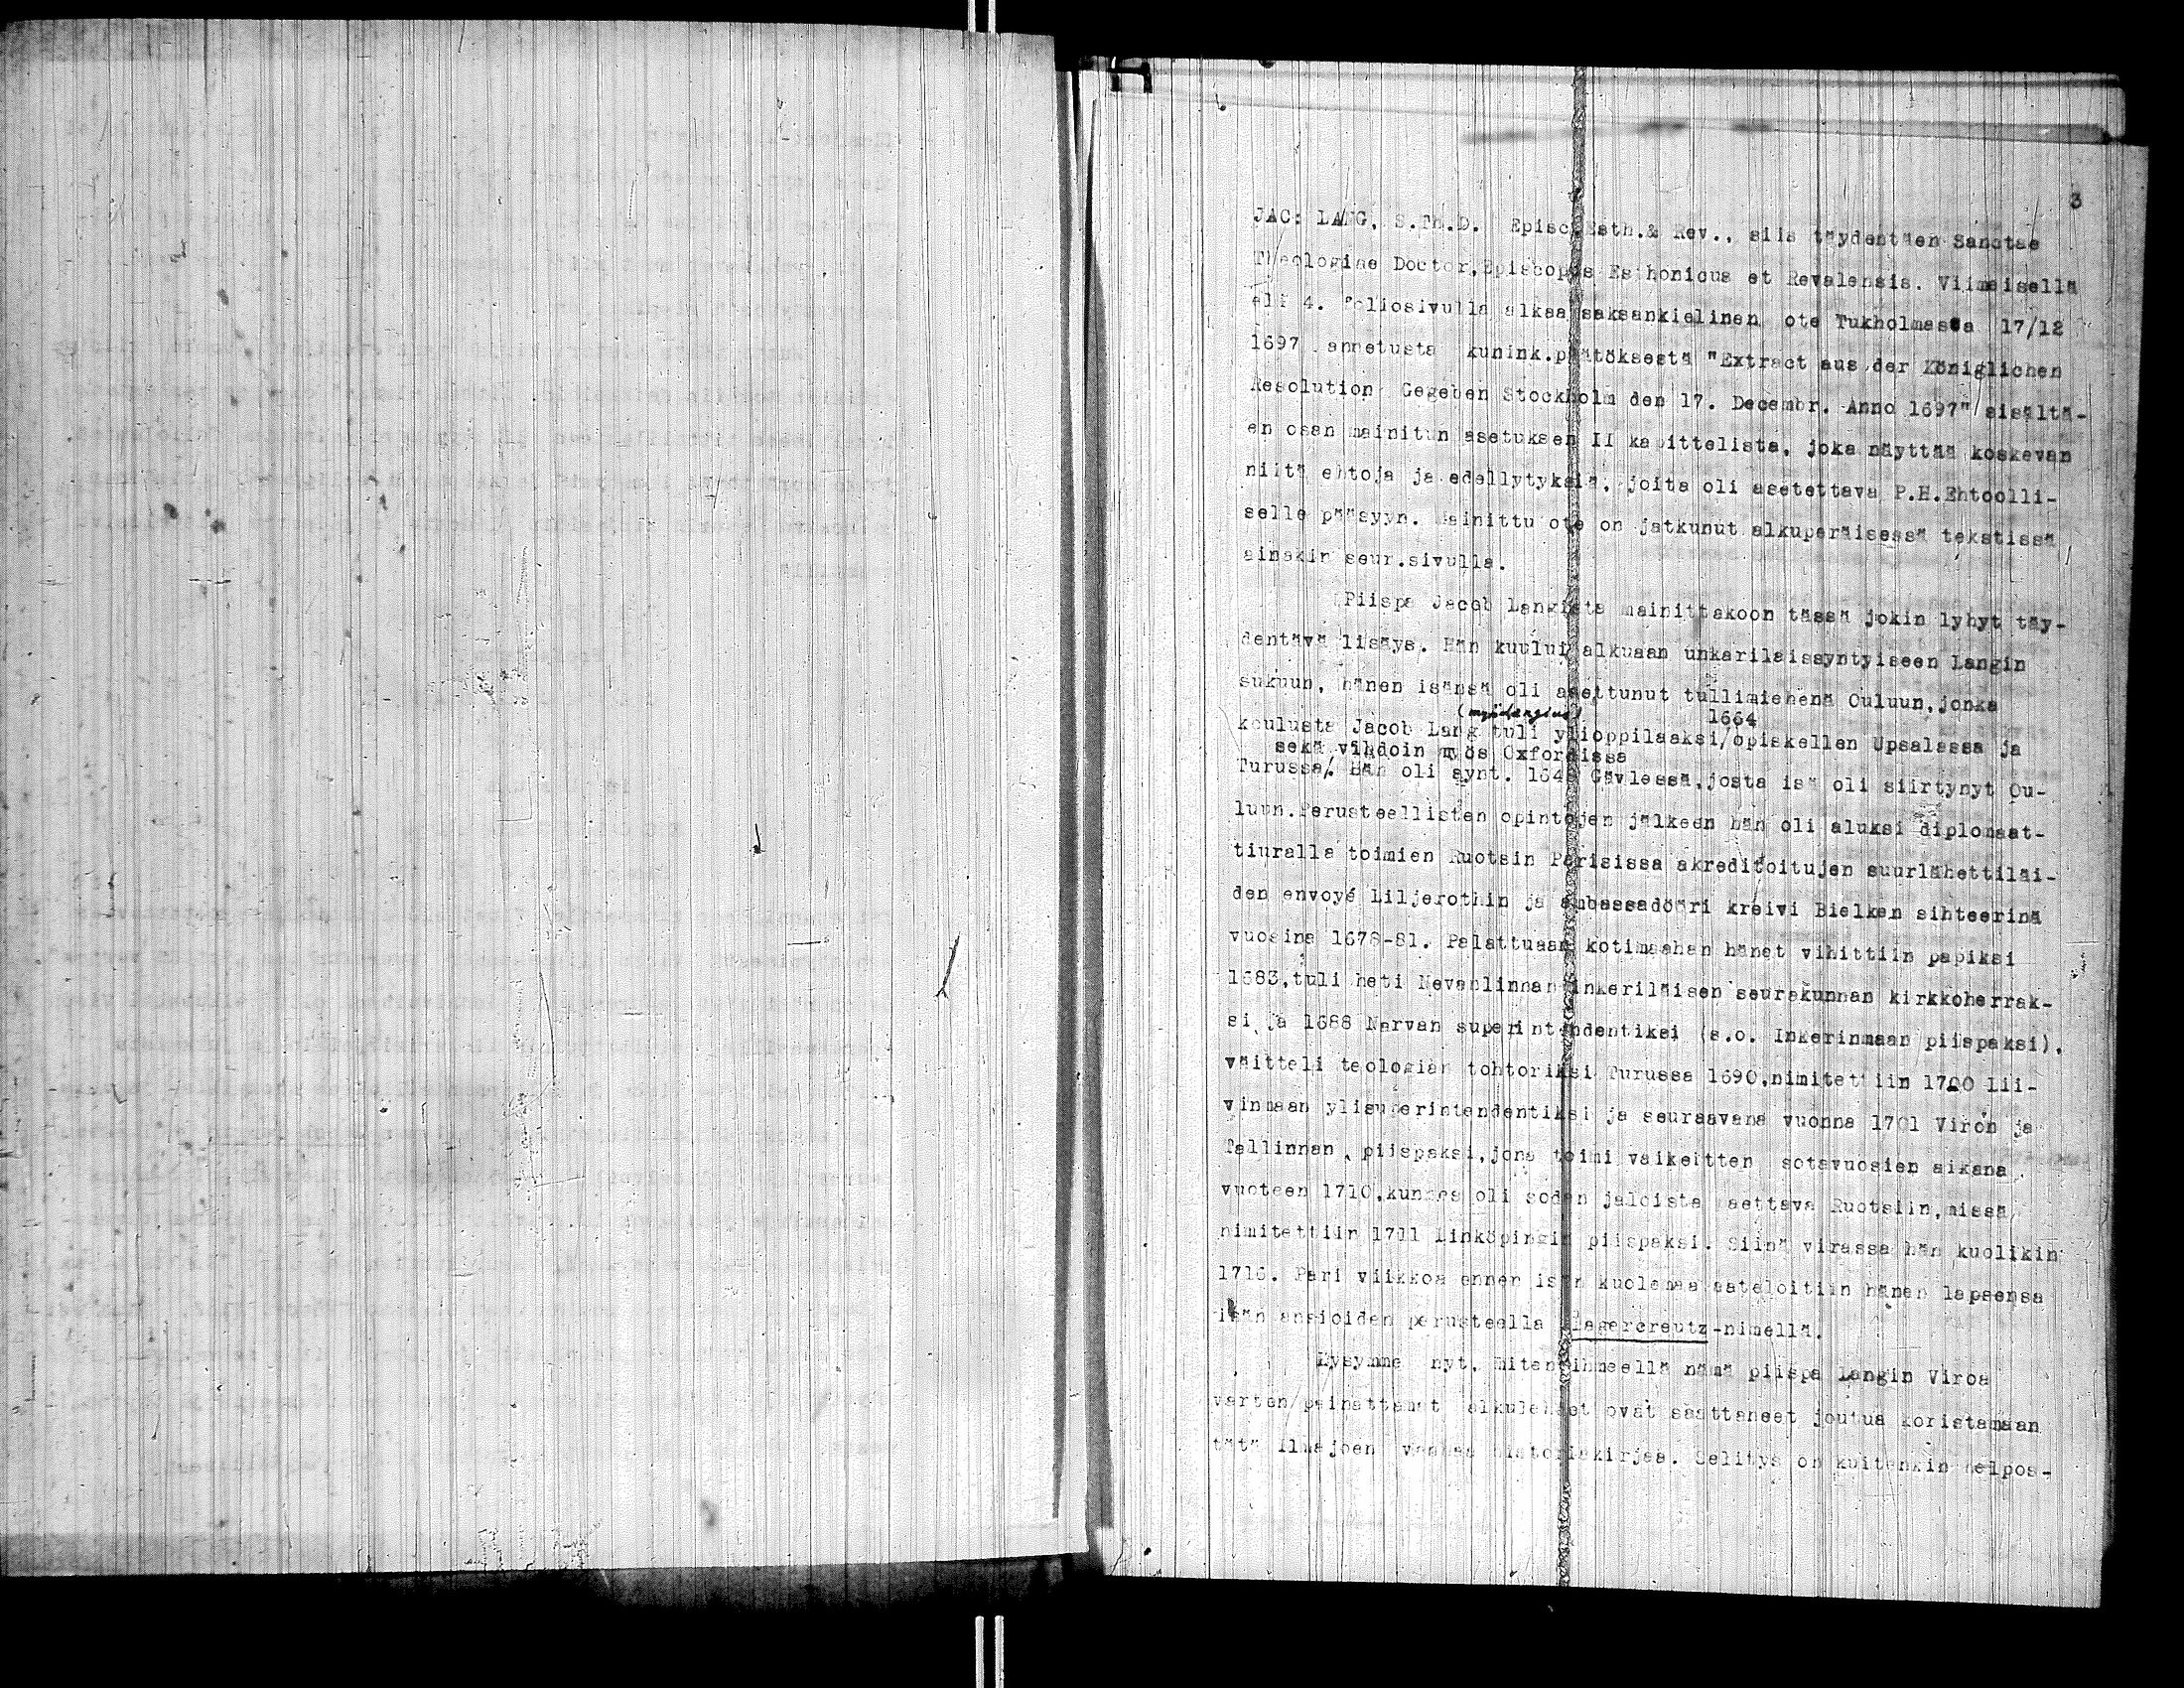 3
JAC: LANG, S.Th.D. Episc.Esth.& Rev., siis täydentäen Sanctae
Theologiae Doctor,Episcopus Esthonicus et Revalensis. Viimeisellä
eli 4. foliosivulla alkaa saksankielinen ote Tukholmassa 17/12
1697 annetusta kunink.päätöksestä "Extract aus der Königlichen
Resolution Gegeben Stockholm den 17. Decembr. Anno 1697" sisältä-
en osan mainitun asetuksen II kapittelista, joka näyttää koskevan
niitä ehtoja ja edellytyksiä, joita oli asetettava P.H.Ehtoolli-
selle pääsyyn. Mainittu ote on jatkunut alkuperäisessä tekstissä
ainakin seur.sivulla.
Piispa Jacob Langista mainittakoon tässä jokin lyhyt täy-
dentävä lisäys. Hän kuului alkuaan unkarilaissyntyiseen Langin
sukuun, hänen isänsä oli asettunut tullimiehenä Ouluun,jonka
(myöd.
1664
koulusta Jacob Lang tuli ylioppilaaksi/opiskellen Upsalassa ja
sekä vihdoin myös Oxfordissa
Turussa/. Hän oli synt. Gävlessä,josta isä oli siirtynyt Ou-
luun.Perusteellisten opintojen jälkeen hän oli aluksi diplomaat-
tiuralla toimien Ruotsin Parisissa akreditoitujen suurlähettiläi-
den envoyé Liljerothin ja ambassadööri kreivi Bielken sihteerinä
vuosina 1678-81. Palattuaan kotimaahan hänet vihittiin papiksi
1683,tuli heti Nevanlinnan inkeriläisen seurakunnan kirkkoherrak-
si ja 1688 Narvan superintendentiksi (s.o. Inkerinmaan piispaksi),
väitteli teologian tohtoriksi Turussa 1690,nimitettiin 1700 Lii-
vinmaan ylisuperintendentiksi ja seuraavana vuonna 1701 Viron ja
Tallinnan piispaksi,jona toimi vaikeitten sotavuosien aikana
vuoteen 1710,kunnes oli sodan jaloista paettava Ruotsiin,missä
nimitettiin 1711 Linköpingin piispaksi. Siinä virassa hän kuolikin
1716. Pari viikkoa ennen isän kuolemaa aateloitiin hänen lapsensa
isän ansioiden perusteella Lagercreutz-nimellä.
Kysymme nyt, miten ihmeellä nämä piispa Langin Viroa
varten painattamat alkulehdet ovat saattaneet joutua koristamaan
tätä Ilmajoen vanhaa historiakirjaa. Selitys on kuitenkin helpos-